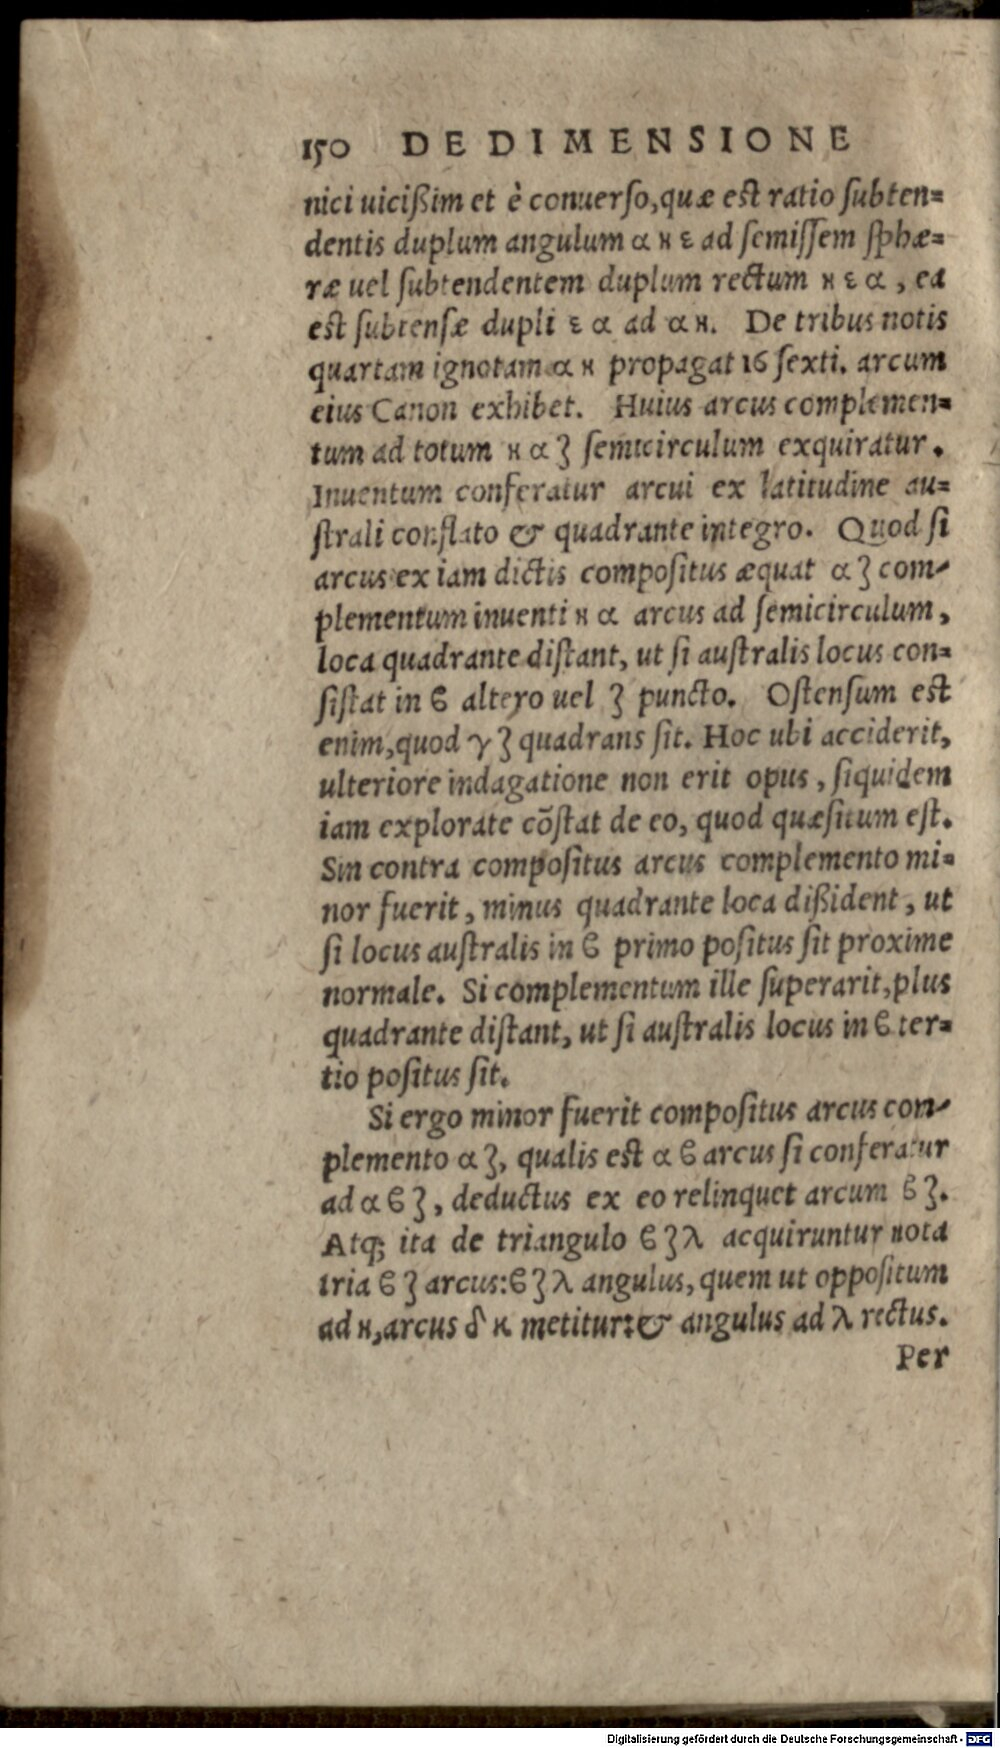 150 DE DIMENSIONE
nici uicißim et è conuerſo, quæ eſt ratio ſubten=
dentis duplum angulum α κ ε ad ſemiſſem ſphæ=
ræ uel ſubtendentem duplum rectum κ ε α, ea
eſt ſubtenſæ dupli ε α ad α κ. De tribus notis
quartam ignotam α κ propagat 16 ſexti. arcum
eius Canon exhibet. Huius arcus complemen=
tum ad totum κ α ȝ ſemicirculum exquiratur.
Inuentum conferatur arcui ex latitudine au=
ſtrali conflato & quadrante integro. Quod ſi
arcus ex iam dictis compoſitus æquat α ȝ com-
plementum inuenti κ α arcus ad ſemicirculum,
loca quadrante diſtant, ut ſi auſtralis locus con=
ſiſtat in ϐ altero uel ȝ puncto. Oſtenſum eſt
enim, quod γ ȝ quadrans ſit. Hoc ubi acciderit,
ulteriore indagatione non erit opus, ſiquidem
iam explorate cõſtat de eo, quod quæſitum eſt.
Sin contra compoſitus arcus complemento mi=
nor fuerit, minus quadrante loca dißident, ut
ſi locus auſtralis in ϐ primo poſitus ſit proxime
normale. Si complementum ille ſuperarit, plus
quadrante diſtant, ut ſi auſtralis locus in ϐ ter=
tio poſitus ſit.
Si ergo minor fuerit compoſitus arcus com-
plemento α ȝ, qualis eſt α ϐ arcus ſi conferatur
ad α ϐ ȝ, deductus ex eo relinquet arcum ϐ ȝ.
Atq; ita de triangulo ϐ ȝ λ acquiruntur nota
tria ϐ ȝ arcus: ϐ ȝ λ angulus, quem ut oppoſitum
ad κ, arcus δ κ metitur: & angulus ad λ rectus.
Per
Digitalisierung gefördert durch die Deutsche Forschungsgemeinschaft - DFG